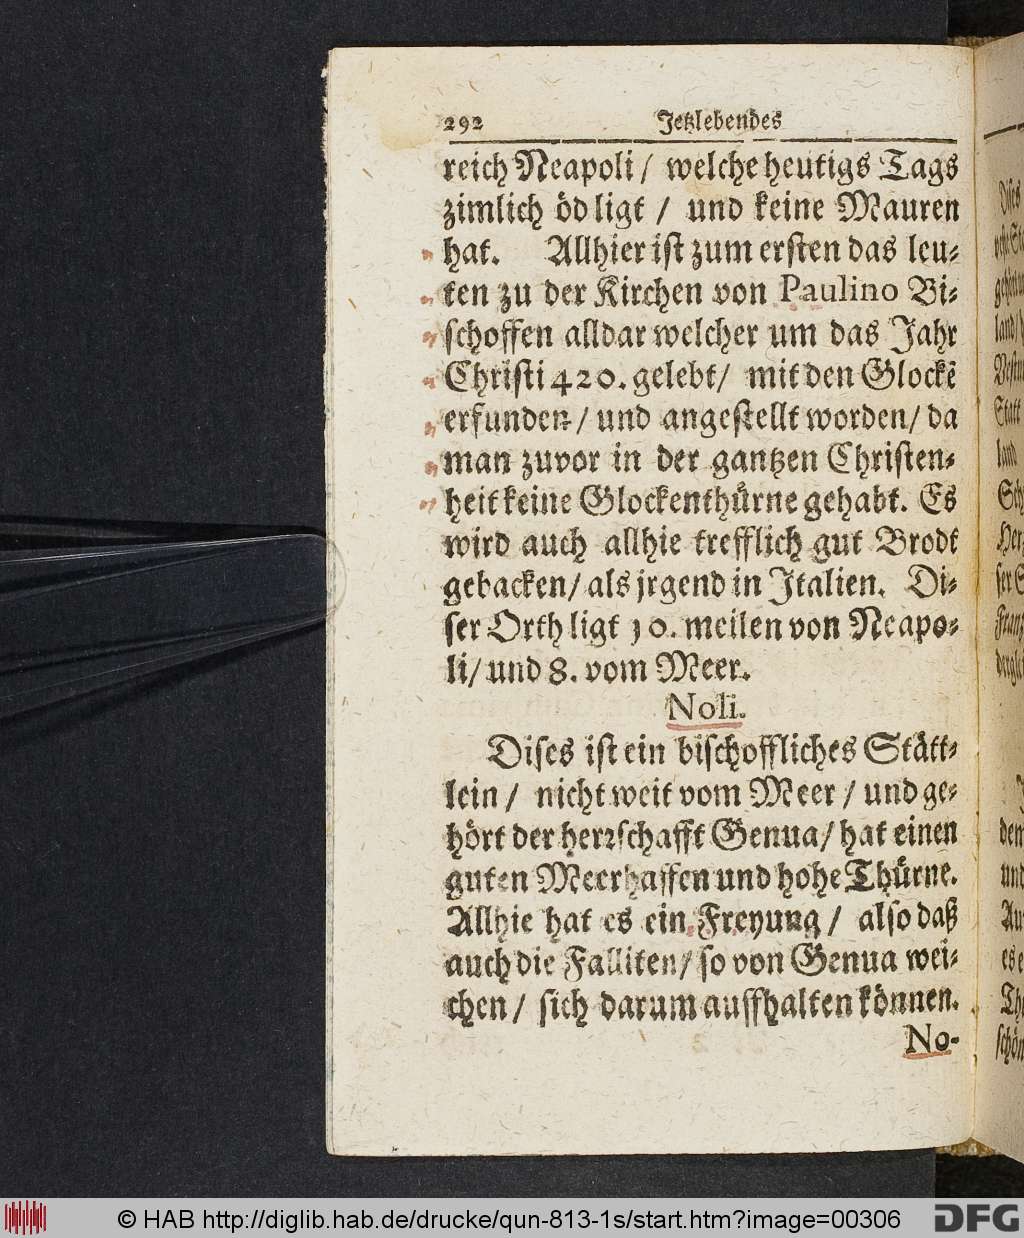 292 Jetzlebendes
reich Neapoli / welche heutigs Tags
zimlich öd ligt / und keine Mauren
hat. Allhier ist zum ersten das leu-
ten zu der Kirchen von Paulino Bi-
schoffen alldar welcher um das Jahr
Christi 420. gelebt / mit den Glockẽ
erfunden / und angestellt worden / da
man zuvor in der gantzen Christen-
heit keine Glockenthürne gehabt. Es
wird auch allhie trefflich gut Brodt
gebacken / als jrgend in Italien. Di-
ser Orth ligt 10. meilen von Neapo-
li / und 8. vom Meer.
Noli.
Dises ist ein bischoffliches Stätt-
lein / nicht weit vom Meer / und ge-
hört der herrschafft Genua / hat einen
guten Meerhaffen und hohe Thürne.
Allhie hat es ein Freyung / also daß
auch die Falliten / so von Genua wei-
chen / sich darum auffhalten können.
No-
© HAB http://diglib.hab.de/drucke/qun-813-1s/start.htm?image=00306
DFG